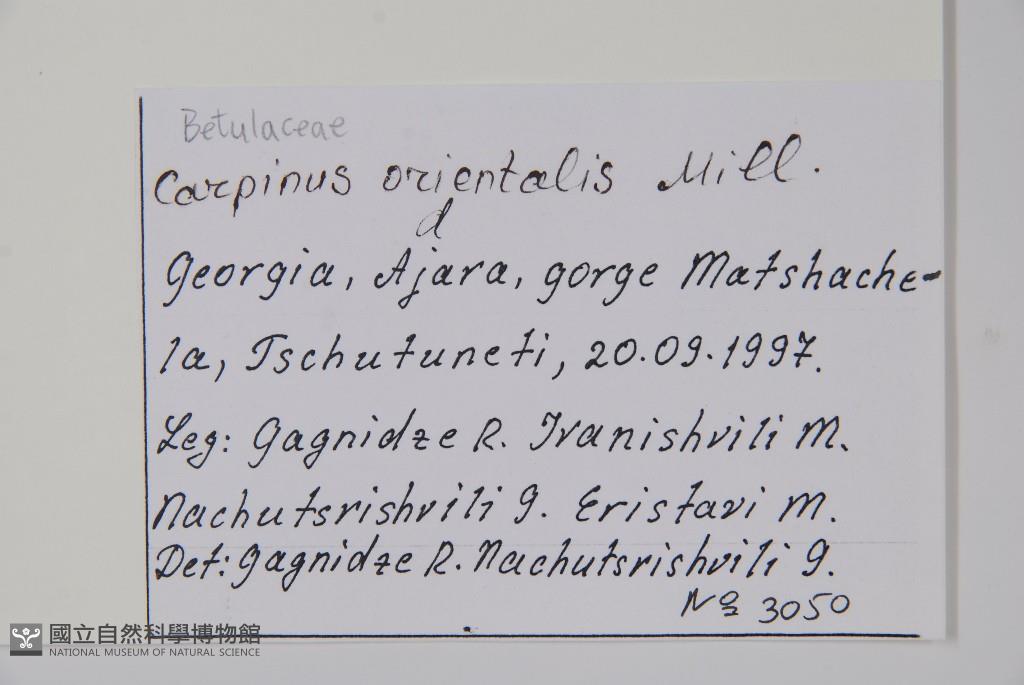 Betulaceae
Carpinus orientalis Mill.
d
Georgia, Ajara, gorge Matshache-
la, Tschutuneti, 20.09.1997.
Leg: Gagnidze R. Ivanishvili M.
Nachutsrishvili G. Eristavi M.
Det: Gagnidze R. Nachutsrishvili G.
№ 3050
國立自然科學博物館
NATIONAL MUSEUM OF NATURAL SCIENCE